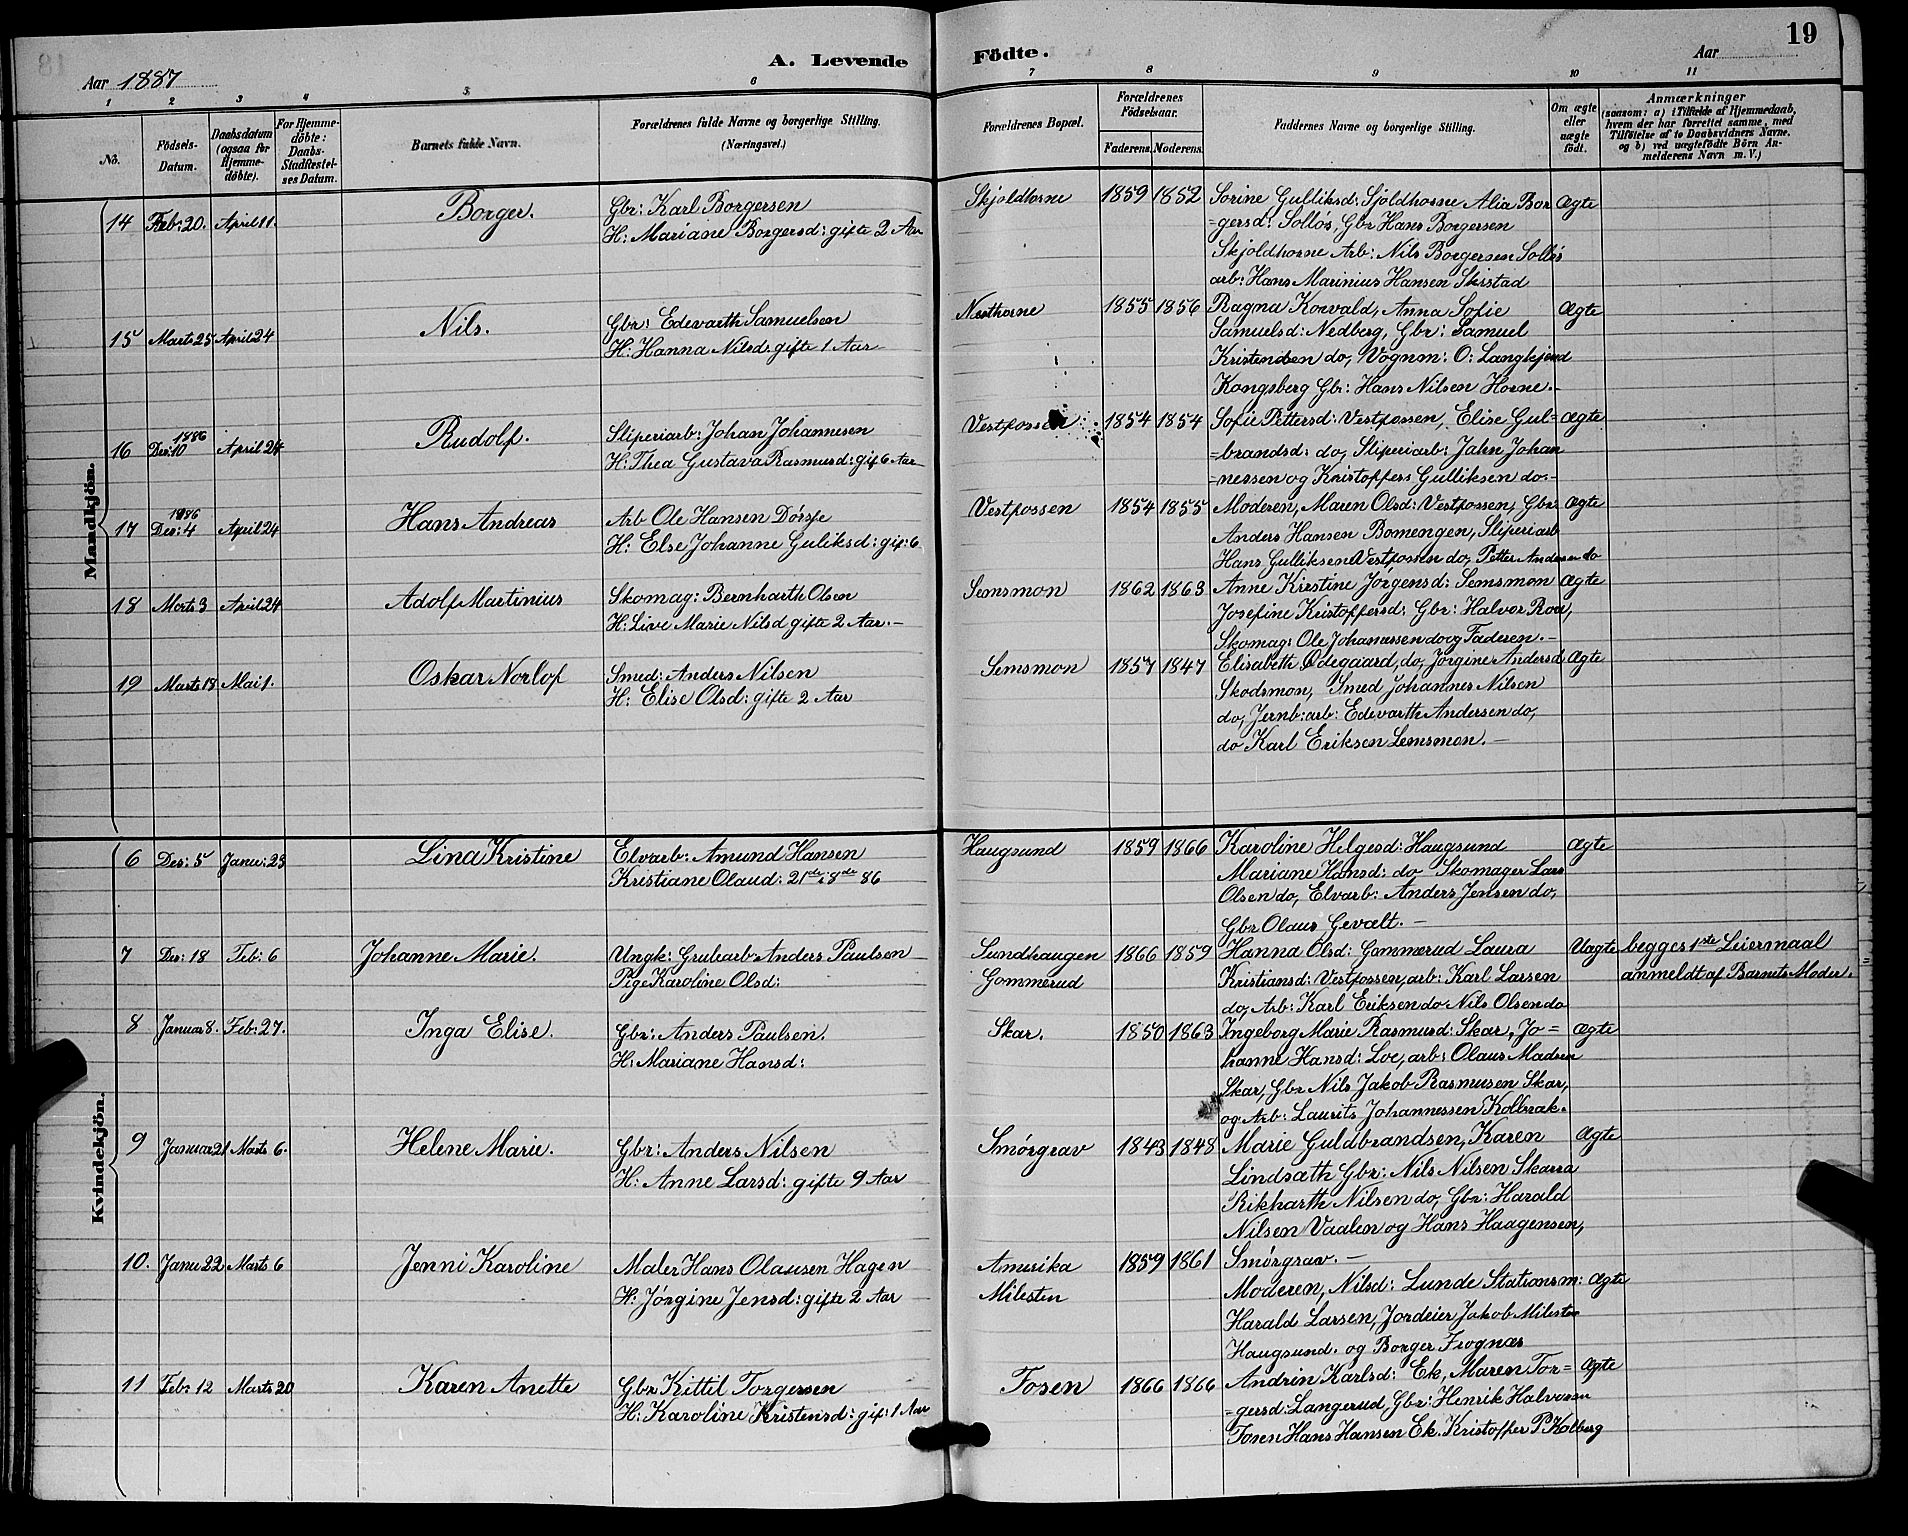 19
A. Levende Födte.
Aar 1887
Aar
1 2 3 4 5 6 7 8 9 10 11
No.
Födsels-Datum.
Daabsdatum (ogsaa for Hjemme-döbte).
For Hjemme-döbte: Daabs-Stadfæstel-ses Datum.
Barnets fulde Navn.
Forældrenes fulde Navne og borgerlige Stilling. (Næringsvei.)
Forældrenes Bopæl.
Forældrenes Födselsaar.
Faderens. Moderens.
Faddernes Navne og borgerlige Stilling.
Om ægte eller uægte født.
Anmærkninger
(saasom: a) i Tilfælde af Hjemmedaab, hvem der har forrettet samme, med Tilföielse af to Daabsvidners Navne, og b) ved uægtefödte Börn An-melderens Navn m. V.)
Mandkjön.
14 Feb: 20. April 11. Borger. Gbr: Karl Borgersen
H: Mariane Borgersd: gifte 2 Aar
Skjoldhorne 1859 1852 Sorine Gulliksd: Sjoldhorne Alia Bor Ægte
=gersd: Solløs, Gbr Hans Borgersen
Skjoldhorne Arb: Nils Borgersen Solløs
arb: Hans Marinius Hansen Skistad
15 Marts 25 April 24 Nils. Gbr: Edevarth Samuelsen
H: Hanna Nilsd: gifte 1 Aar
Nesthorne 1855 1856 Ragna Korvald, Anna Sofie Ægte
Samuelsd: Nedberg, Gbr: Samuel
Kristendsen do, Vognm: O: Langkjend
Kongsberg Gbr: Hans Nilsen Horne.
16 1886 Des: 10 April 24 Rudolf. Sliperiarb: Johan Johannesen
H: Thea Gustava Rasmusd: gif 6 Aar
Vestfossen 1854 1854 Sofie Pettersd: Vestfossen, Elise Gul= Ægte
=brandsd: do, Sliperiarb: Jahn Johan
=nessen og Kristoffers Gulliksen do.
17 1886 Des: 4 April 24 Hans Andreas Arb Ole Hansen Dørsje
H: Else Johanne Guliksd: gif: 6
Vestfossen 1854 1855 Moderen, Maren Olsd: Vestfossen, Gbr: Ægte
Anders Hansen Bomengen, Sliperiarb
Hans Gulliksen Vestfossen do, Petter Andersen do
18 Marts 3 April 24 Adolf Martinius Skomag: Bernharth Olsen
H: Live Marie Nilsd gifte 2 Aar.
Semsmon 1862 1863 Anne Kirstine Jørgensd: Semsmon Ægte
Josefine Kristoffersd: Gbr: Halvor Roa,
Skomag: Ole Johanassen do og Faderen.
19 Marts 18 Mai 1. Oskar Norlof Smed: Anders Nilsen
H: Elise Olsd: gifte 2 Aar
Semsmon 1857 1847 Elisabeth Ødegaard, do, Jørgine Andersd Ægte
Skodsmon, Smed Johannes Nilsen
do, Jernb: arb: Edevarth Andersen do,
do Karl Eriksen Semsmon.
Kvindekjön.
6 Des: 5 Janu: 23 Lina Kristine Elvarb: Amund Hansen
Kristiane Olaud: 21de i 8de 86
Haugsund 1859 1866 Karoline Helgesd: Haugsund Ægte
Mariane Hansd: do Skomager Lars
Olsen do, Elvarb: Anders Jensen do,
Gbr Olaus Gevælt.
7 Des: 18 Feb: 6 Johanne Marie. Ungk: Grubearb Anders Paulsen
Pige Karoline Olsd:
Sundhaugen 1866 1859 Hanna Olsd: Gommerud Laura Uægte begges 1ste Leiermaal
Gommerud Kristiansd: Vestfossen, arb: Karl Larsen anmeldt af Barnets Moder.
do, Arb: Karl Eriksen do Nils Olsen do
8 Januar 8. Feb: 27. Inga Elise. Gbr: Anders Paulsen.
H: Mariane Hansd:
Skar. 1850 1863 Ingeborg Marie Rasmusd: Skar, Jo= Ægte
hanne Hansd: Loe, arb: Olaus Madsen
Skar, Gbr Nils Jakob Rasmusen Skar,
og Arb: Laurits Johannessen Kolbræk.
9 Januar 21 Marts 6. Helene Marie. Gbr: Anders Nilsen
H: Anne Larsd: gifte 9 Aar
Smørgrav 1843 1848 Marie Guldbrandsen, Karen Ægte
Lindsæth Gbr: Nils Nilsen Skarra
Rikharth Nilsen do, Gbr: Harald
Nilsen Vaalen og Hans Haagensen,
Smørgrav.
10. Janu 22 Marts 6 Jenni Karoline Maler Hans Olausen Hagen
H: Jørgine Jensd: gifte 2 Aar
Amerika 1859 1861
Milesten Moderen, Nilsd: Lunde Stationsm: Ægte
Harald Larsen, Jordeier Jakob Milesten
Haugsund. og Borger Frognæs
11 Febr 12 Marts 20 Karen Anette Gbr Kittil Torgersen
H: Karoline Kristensd: gif: 1 Aar
Fosen 1866 1866 Andrin Karlsd: Ek, Maren Tor= Ægte
=gersd: Langerud, Gbr: Henrik Halvorsen
Fosen Hans Hansen Ek. Kristoffer P. Kolberg